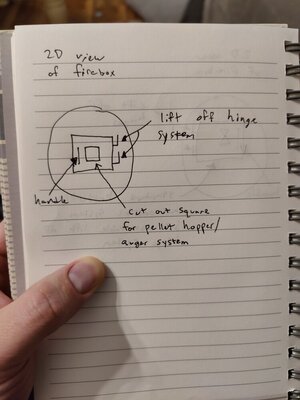 2D view
of firebox
lift off hinge
system
handle
cut out square
for pellet hopper/
auger system